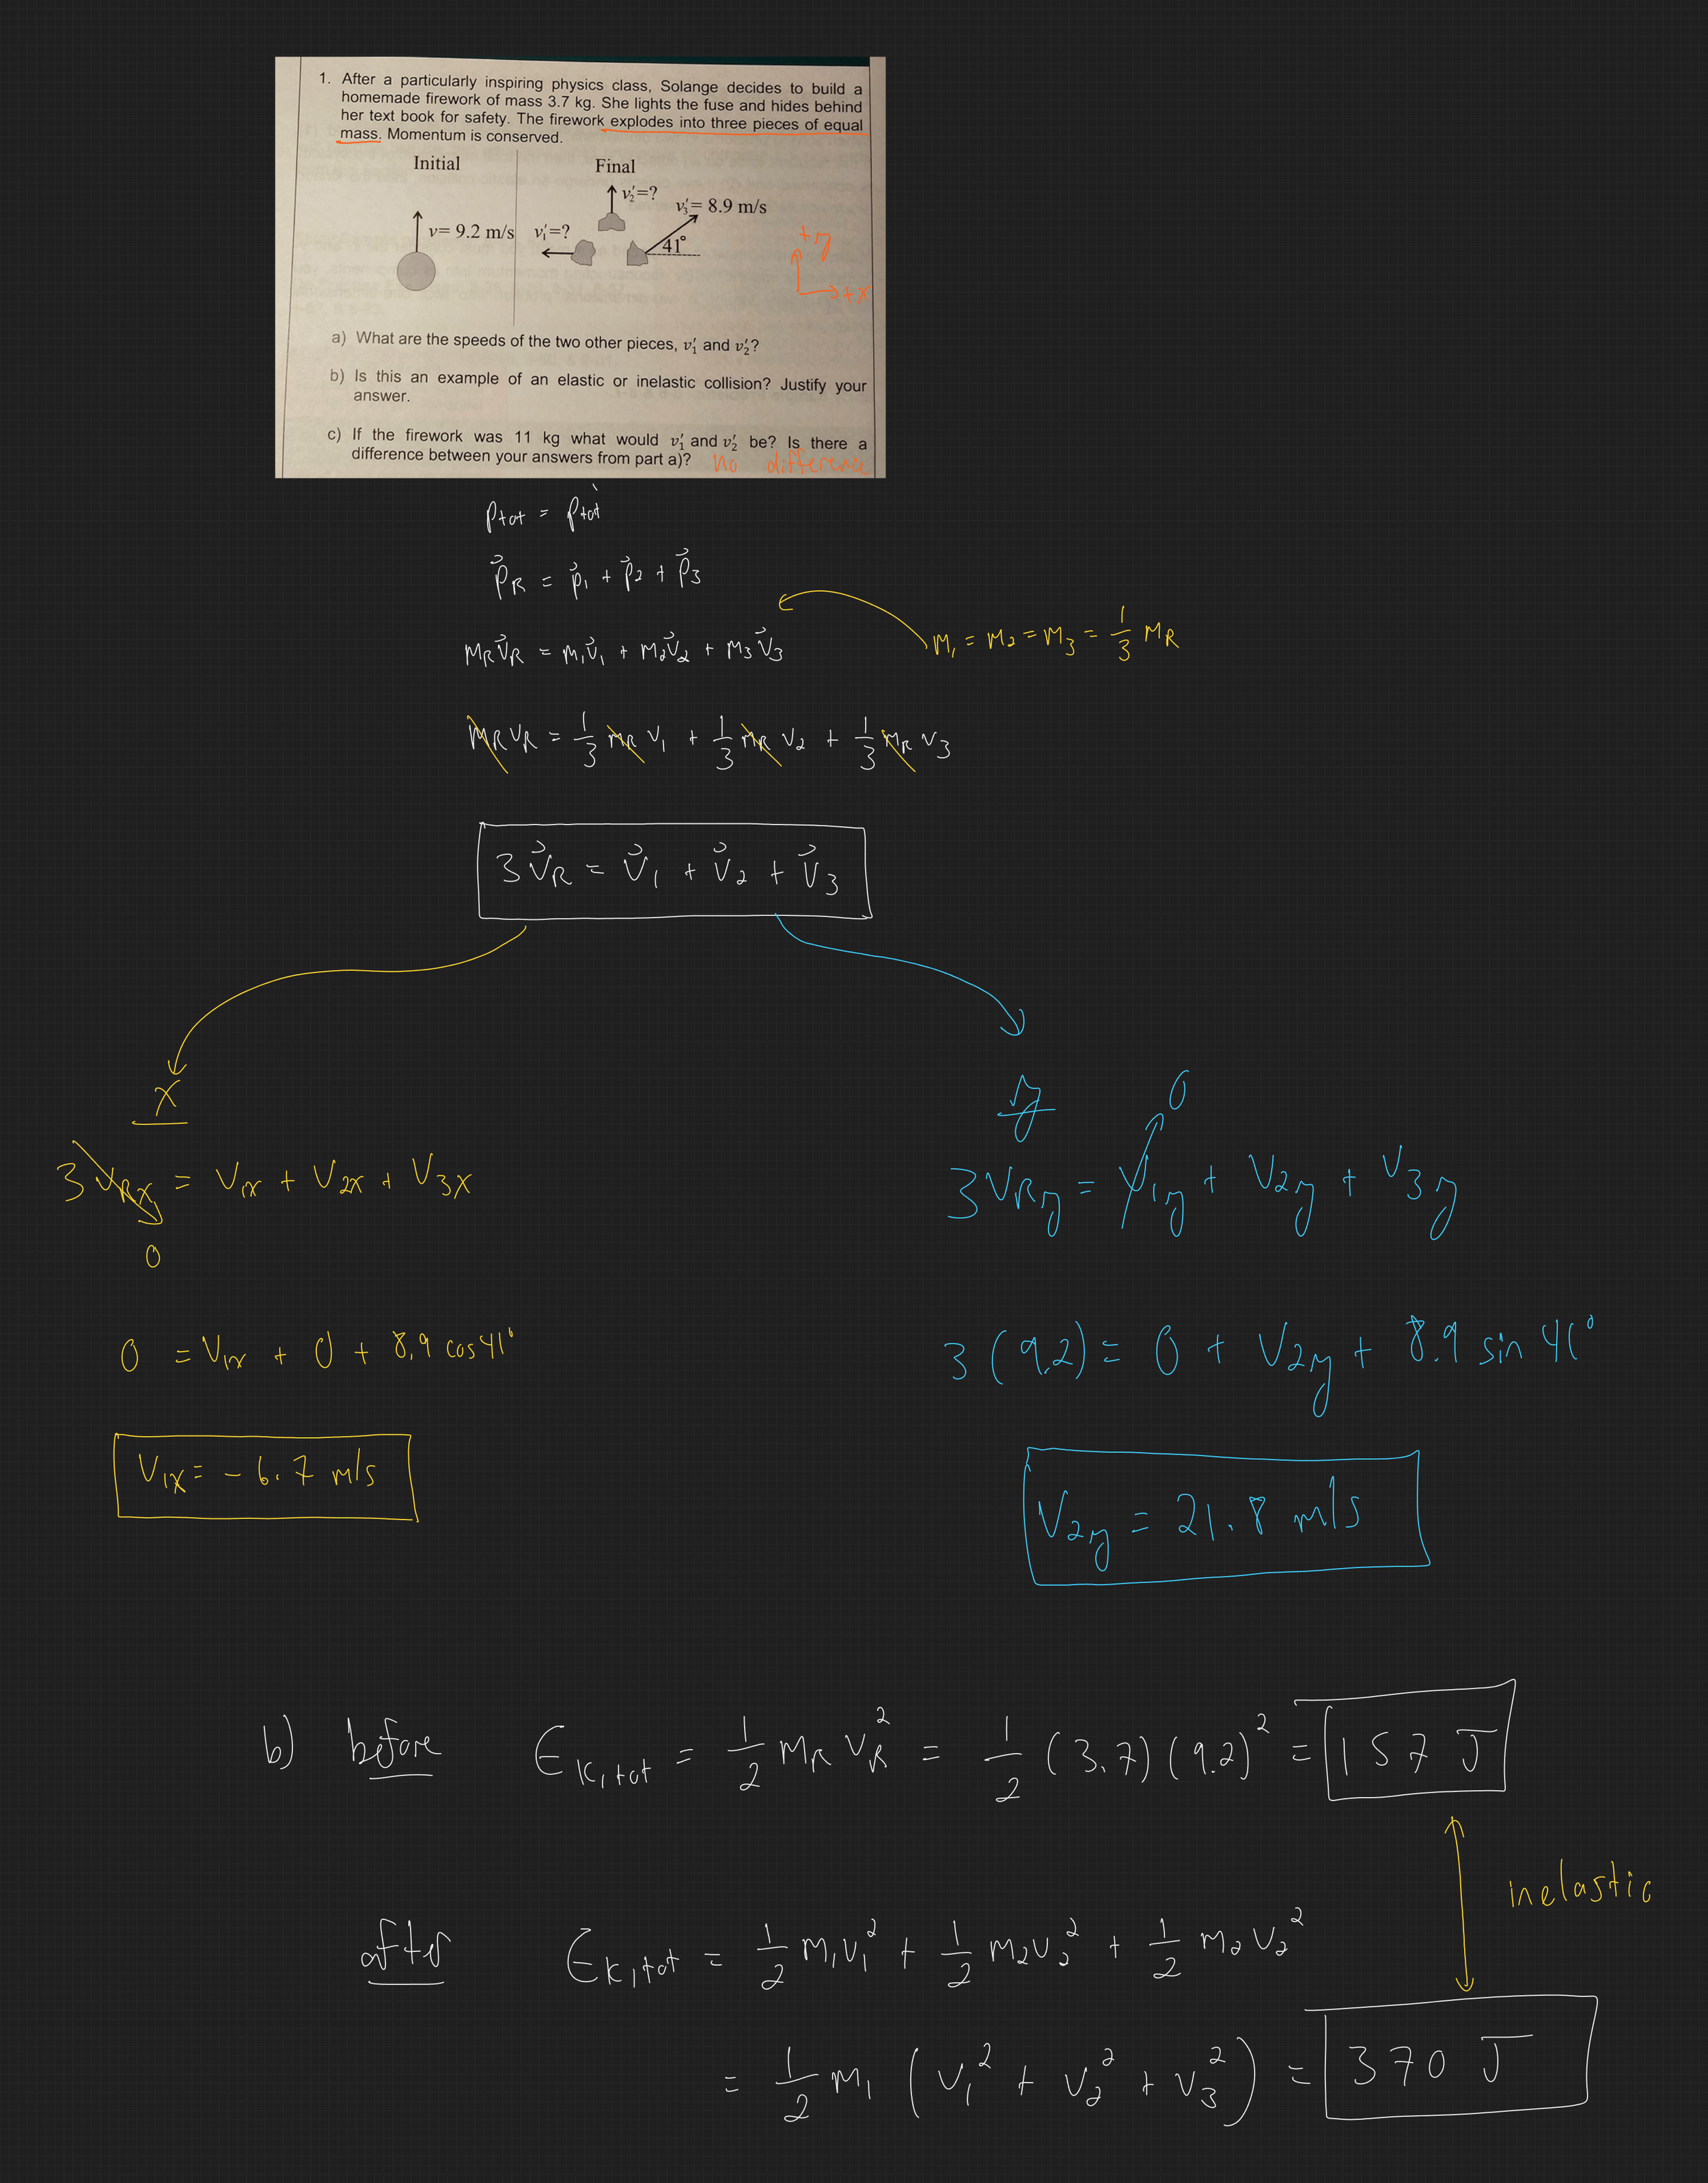 1. After a particularly inspiring physics class, Solange decides to build a
homemade firework of mass 3.7 kg. She lights the fuse and hides behind
her text book for safety. The firework explodes into three pieces of equal
mass. Momentum is conserved.
Initial Final
v₂′=?
v₃′= 8.9 m/s
v= 9.2 m/s v₁′=?
41°
+y
+x
a) What are the speeds of the two other pieces, v₁′ and v₂′?
b) Is this an example of an elastic or inelastic collision? Justify your
answer.
c) If the firework was 11 kg what would v₁′ and v₂′ be? Is there a
difference between your answers from part a)? no difference
Ptot = Ptot′
P⃗R = P⃗1 + P⃗2 + P⃗3
MR V⃗R = M1 V⃗1 + M2 V⃗2 + M3 V⃗3
M1 = M2 = M3 = 1/3 MR
MR VR = 1/3 MR V1 + 1/3 MR V2 + 1/3 MR V3
3 V⃗R = V⃗1 + V⃗2 + V⃗3
x
3 VRx = V1x + V2x + V3x
0
0 = V1x + 0 + 8.9 cos41°
V1x = - 6.7 m/s
y
0
3 VRy = V1y + V2y + V3y
3 (9.2) = 0 + V2y + 8.9 sin 41°
V2y = 21.8 m/s
b) before EK,tot = 1/2 MR VR² = 1/2 (3.7)(9.2)² = 157 J
inelastic
after EK,tot = 1/2 M1 V1² + 1/2 M2 V2² + 1/2 M2 V2²
= 1/2 M1 (V1² + V2² + V3²) = 370 J